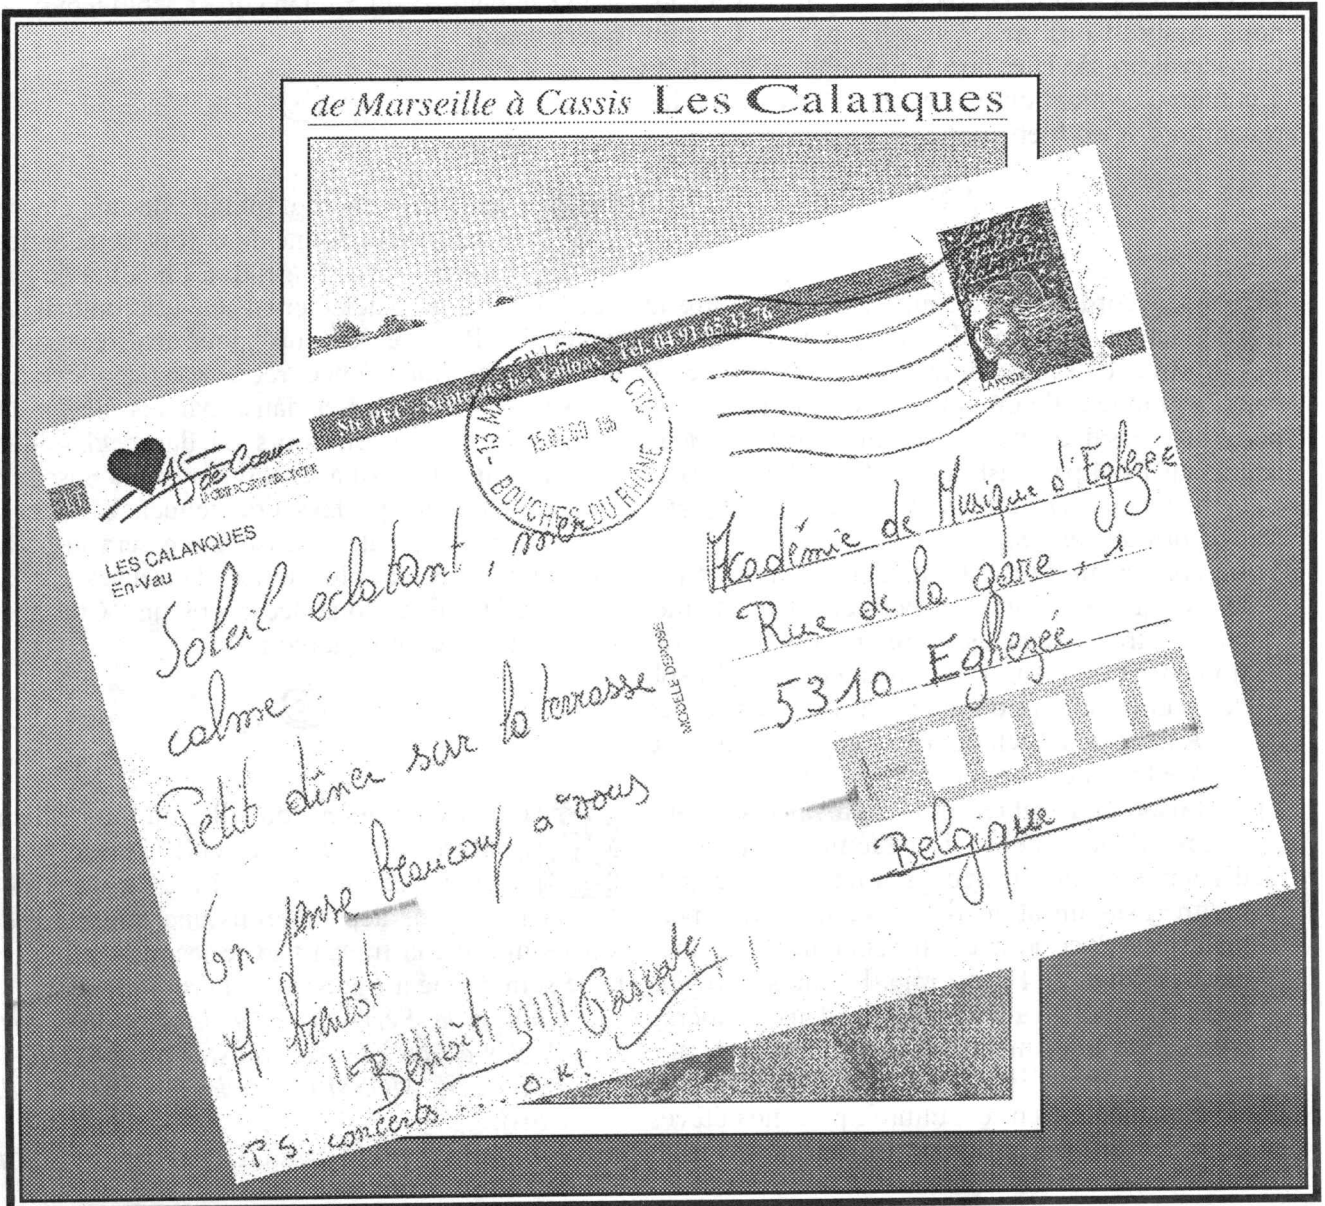 de Marseille à Cassis Les Calanques
Sté PEC - Septèmes les Vallons - Tél. 04 91 65 32 76
13 MARSEILLE
15.02.00
BOUCHES DU RHONE
LA POSTE
AS de Cœur
LES CALANQUES
En-Vau
Soleil éclatant, mer
calme
Petit dîner sur la terrasse
On pense beaucoup à vous
A bientôt
Benoît Pascale
P.S : concerts ... o.k!
MODELE DEPOSE
Académie de Musique d'Eghezée
Rue de la gare, 1
5310 Eghezée
Belgique